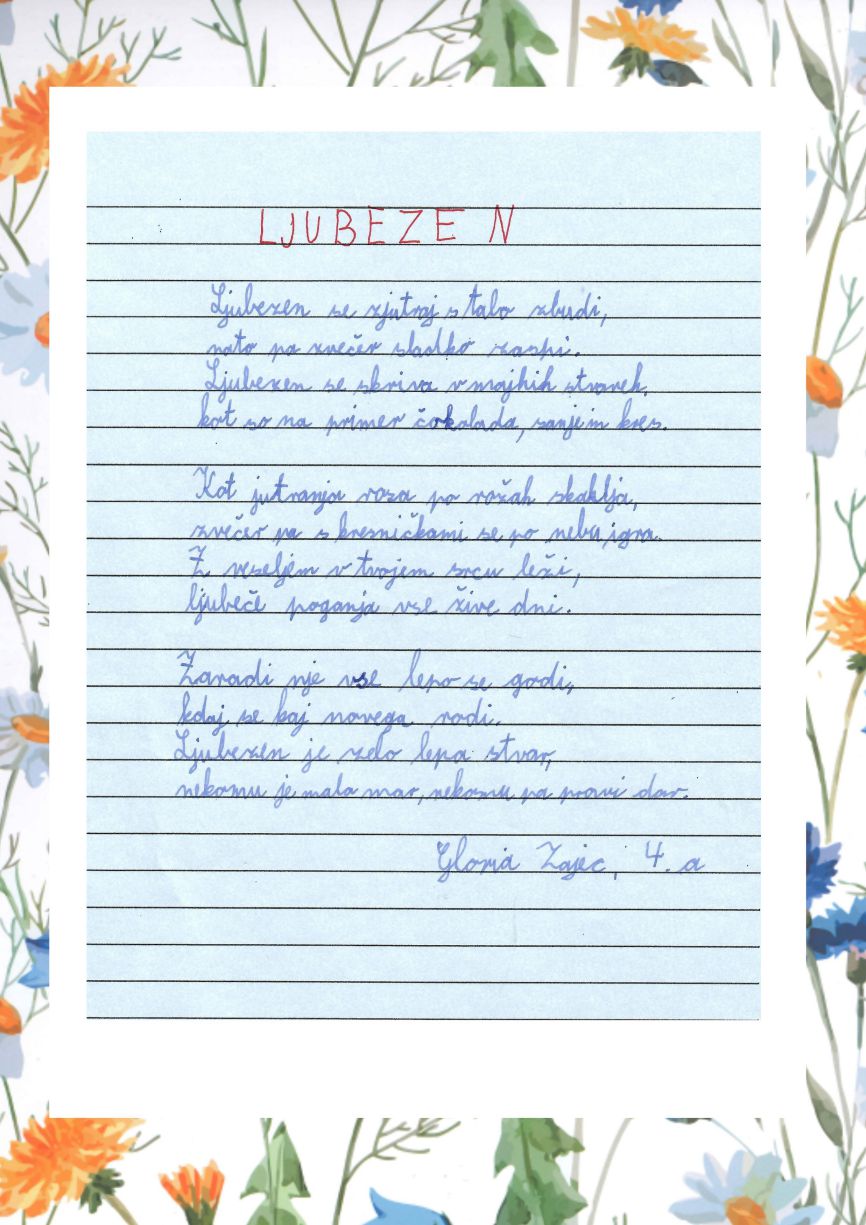 LJUBEZEN
Ljubezen se zjutraj s tabo zbudi,
nato pa zvečer sladko zaspi.
Ljubezen se skriva v majhih stvareh,
kot so na primer čokolada, sanje in kres.
Kot jutranja rosa po rožah skaklja,
zvečer pa s kresničkami se po nebu igra.
Z veseljem v tvojem srcu leži,
ljubeče poganja vse žive dni.
Zaradi nje vse lepo se godi,
kdaj se kaj novega rodi.
Ljubezen je zelo lepa stvar,
nekomu je malo mar, nekomu pa pravi dar.
Gloria Zajec, 4. a